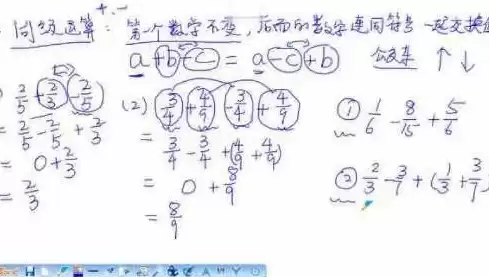 同级运算: 第一个数字不变, 后面的数字连同符号一起交换位
+ . -
a+b-c = a-c+b
↑↓
2/5 + 2/3 - 2/5
= 2/5 - 2/5 + 2/3
= 0 + 2/3
= 2/3
(2) 3/4 + 4/9 - 3/4 + 4/9
= 3/4 - 3/4 + (4/9 + 4/9)
= 0 + 8/9
= 8/9
① 1/6 - 8/15 + 5/6
② 2/3 - 3/7 + (1/3 + 3/7)